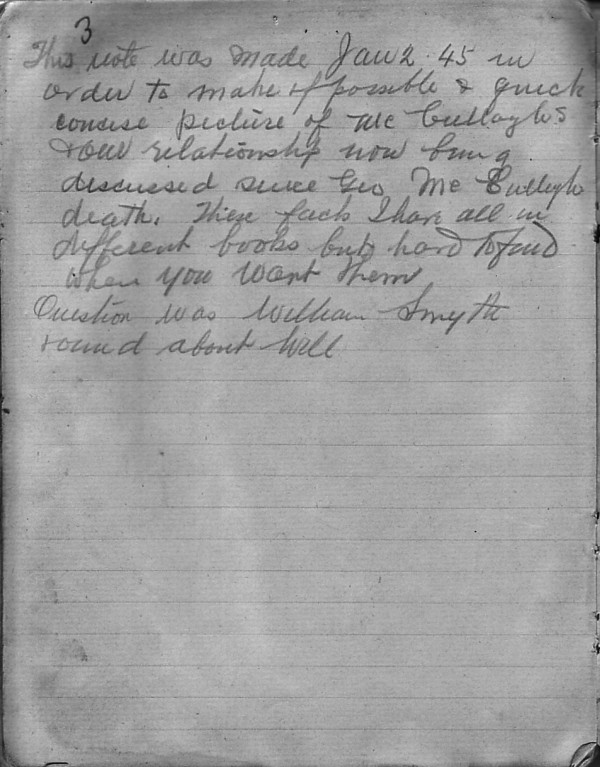 3
This note was made Jan 2. 45 in
order to make if possible a quick
concise picture of Mc Cullaghs
& our relationship now being
discussed since Geo Mc Cullagh
death. These facts I have all in
different books but hard to find
when you want them
Question was William Smyth
round about Will